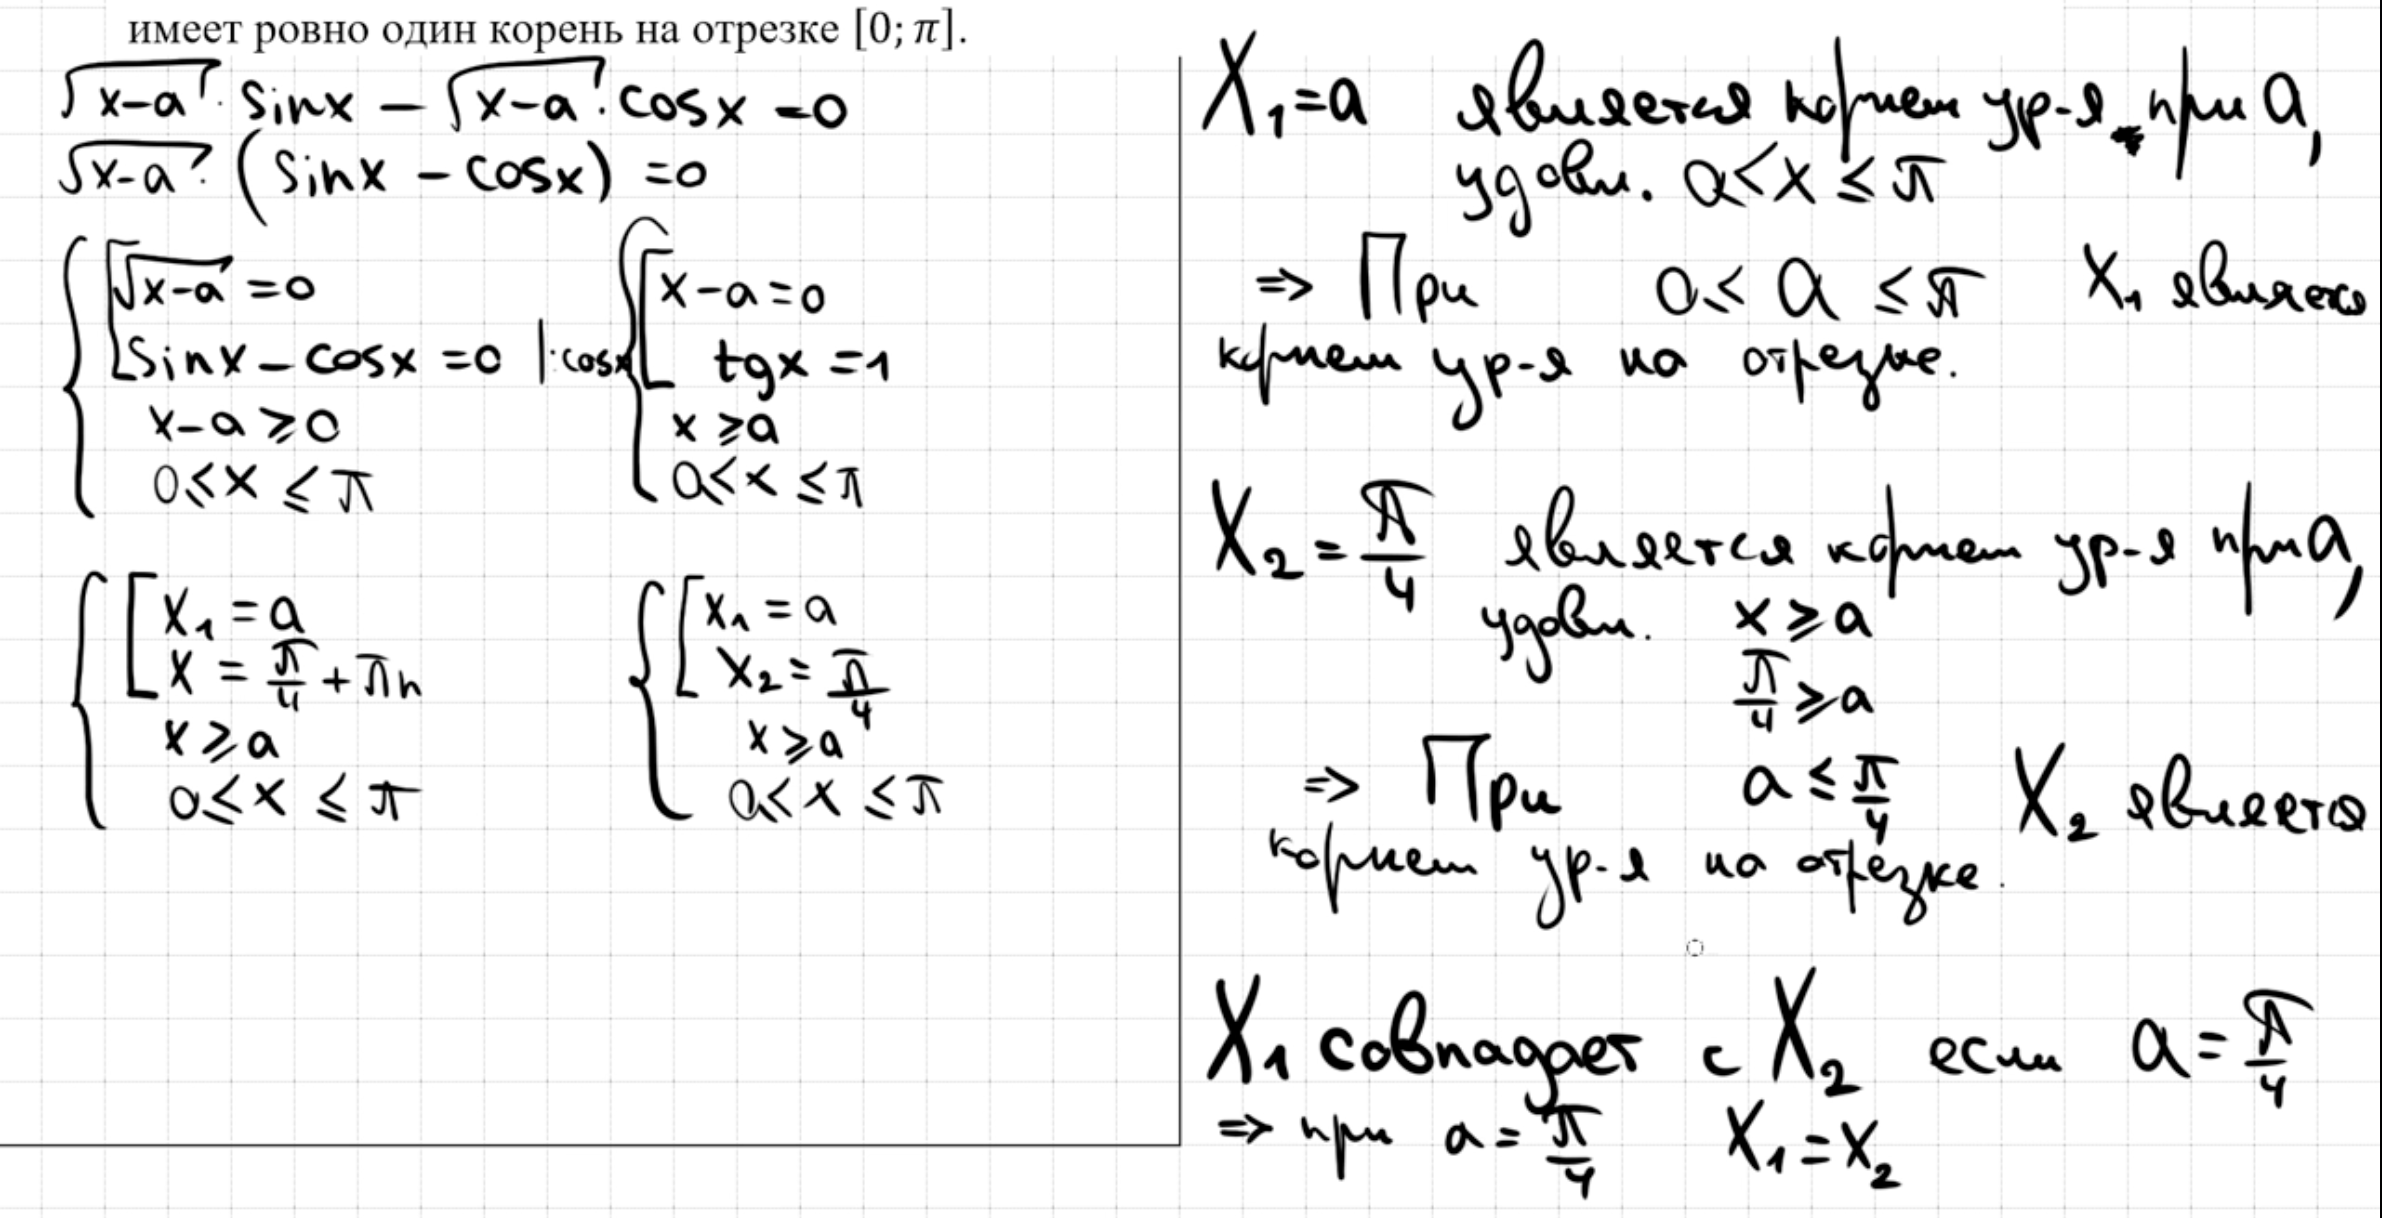 имеет ровно один корень на отрезке [0; π].
√x-a · sinx - √x-a · cosx = 0
√x-a · (sinx - cosx) = 0
√x-a = 0
sinx - cosx = 0 |:cosx
x-a ⩾ 0
0 ⩽ x ⩽ π
x-a = 0
tgx = 1
x ⩾ a
0 ⩽ x ⩽ π
x₁ = a
x = π/4 + πn
x ⩾ a
0 ⩽ x ⩽ π
x₁ = a
x₂ = π/4
x ⩾ a
0 ⩽ x ⩽ π
X₁ = a является корнем ур-я при a,
удовл. 0 ⩽ x ⩽ π
=> При 0 ⩽ a ⩽ π X₁ является
корнем ур-я на отрезке.
X₂ = π/4 является корнем ур-я при a,
удовл. x ⩾ a
π/4 ⩾ a
=> При a ⩽ π/4 X₂ является
корнем ур-я на отрезке.
X₁ совпадает с X₂ если a = π/4
=> при a = π/4 X₁ = X₂